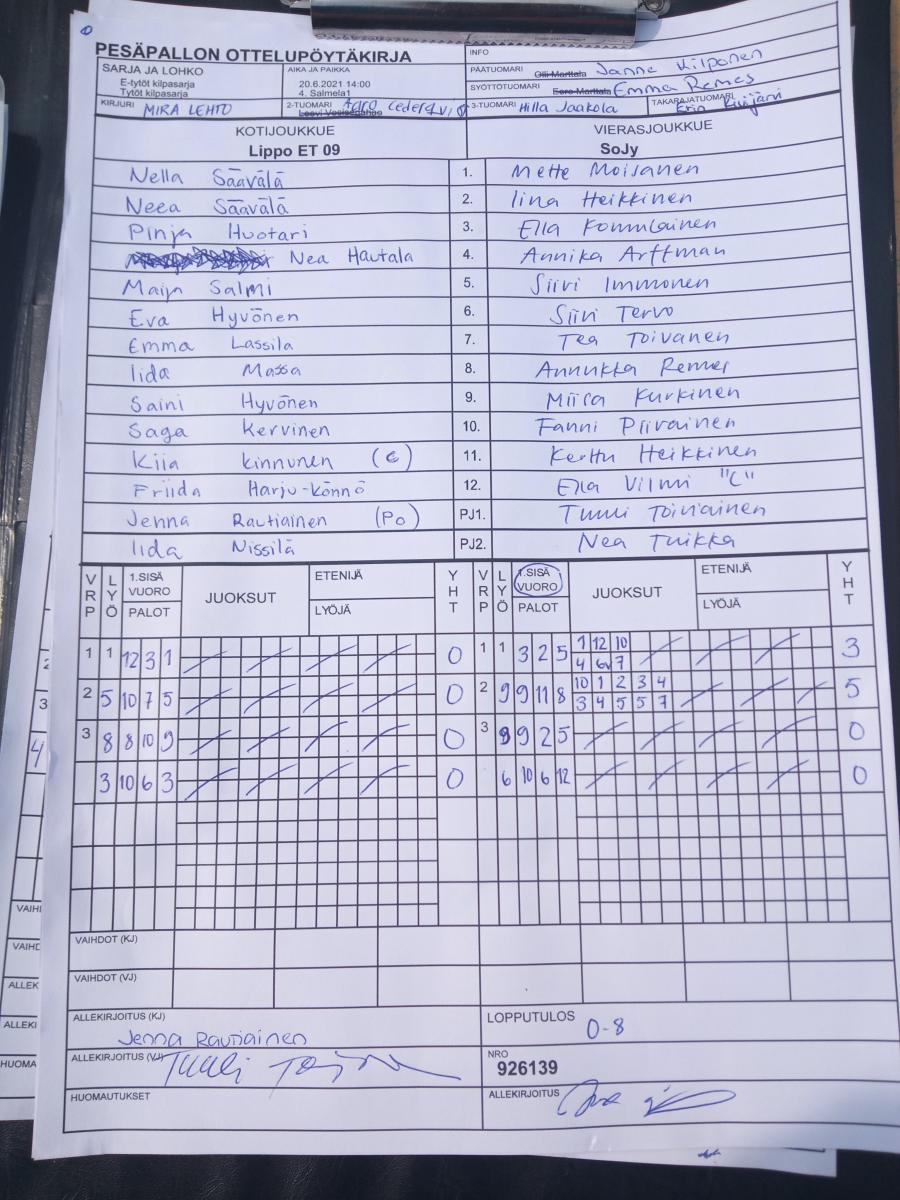 PESÄPALLON OTTELUPÖYTÄKIRJA
INFO
SARJA JA LOHKO
E-tytöt kilpasarja
Tytöt kilpasarja
AIKA JA PAIKKA
20.6.2021 14:00
4. Salmela1
PÄÄTUOMARI Olli Marttala Janne Kilponen
SYÖTTÖTUOMARI Eero Marttala Emma Remes
KIRJURI MIRA LEHTO
2-TUOMARI Aaro
3-TUOMARI Hilla Jaakola
TAKARAJATUOMARI
KOTIJOUKKUE
Lippo ET 09
VIERASJOUKKUE
SoJy
Nella Säävälä 1. Mette Moisanen
Neea Säävälä 2. Iina Heikkinen
Pinja Huotari 3. Ella
Nea Hautala 4. Annika Arffman
Maija Salmi 5. Siiri Immonen
Eva Hyvönen 6. Siiri Tervo
Emma Lassila 7. Tea Toivanen
Iida Massa 8. Annukka Remes
Saini Hyvönen 9. Miisa Kurkinen
Saga Kervinen 10. Fanni Piirainen
Kiia Kinnunen (C) 11. Kerttu Heikkinen
Friida Harju-Könnö 12. Ella Vilmi "C"
Jenna Rautiainen (Po) PJ1. Tuuli Toiviainen
Iida Nissilä PJ2. Nea Tuikka
VRP LYÖ 1.SISÄ VUORO PALOT JUOKSUT ETENIJÄ LYÖJÄ YHT VRP LYÖ 1.SISÄ VUORO PALOT JUOKSUT ETENIJÄ LYÖJÄ YHT
1 1 12 3 1 0 1 1 3 2 5 1 12 10 3
4 6v 7
2 5 10 7 5 0 2 9 9 11 8 10 1 2 3 4 5
3 4 5 5 7
3 8 8 10 9 0 3 9 9 2 5 0
3 10 6 3 0 6 10 6 12 0
VAIHDOT (KJ)
VAIHDOT (VJ)
ALLEKIRJOITUS (KJ)
Jenna Rautiainen
LOPPUTULOS
0-8
ALLEKIRJOITUS (VJ) Tuuli
NRO
926139
HUOMAUTUKSET
ALLEKIRJOITUS